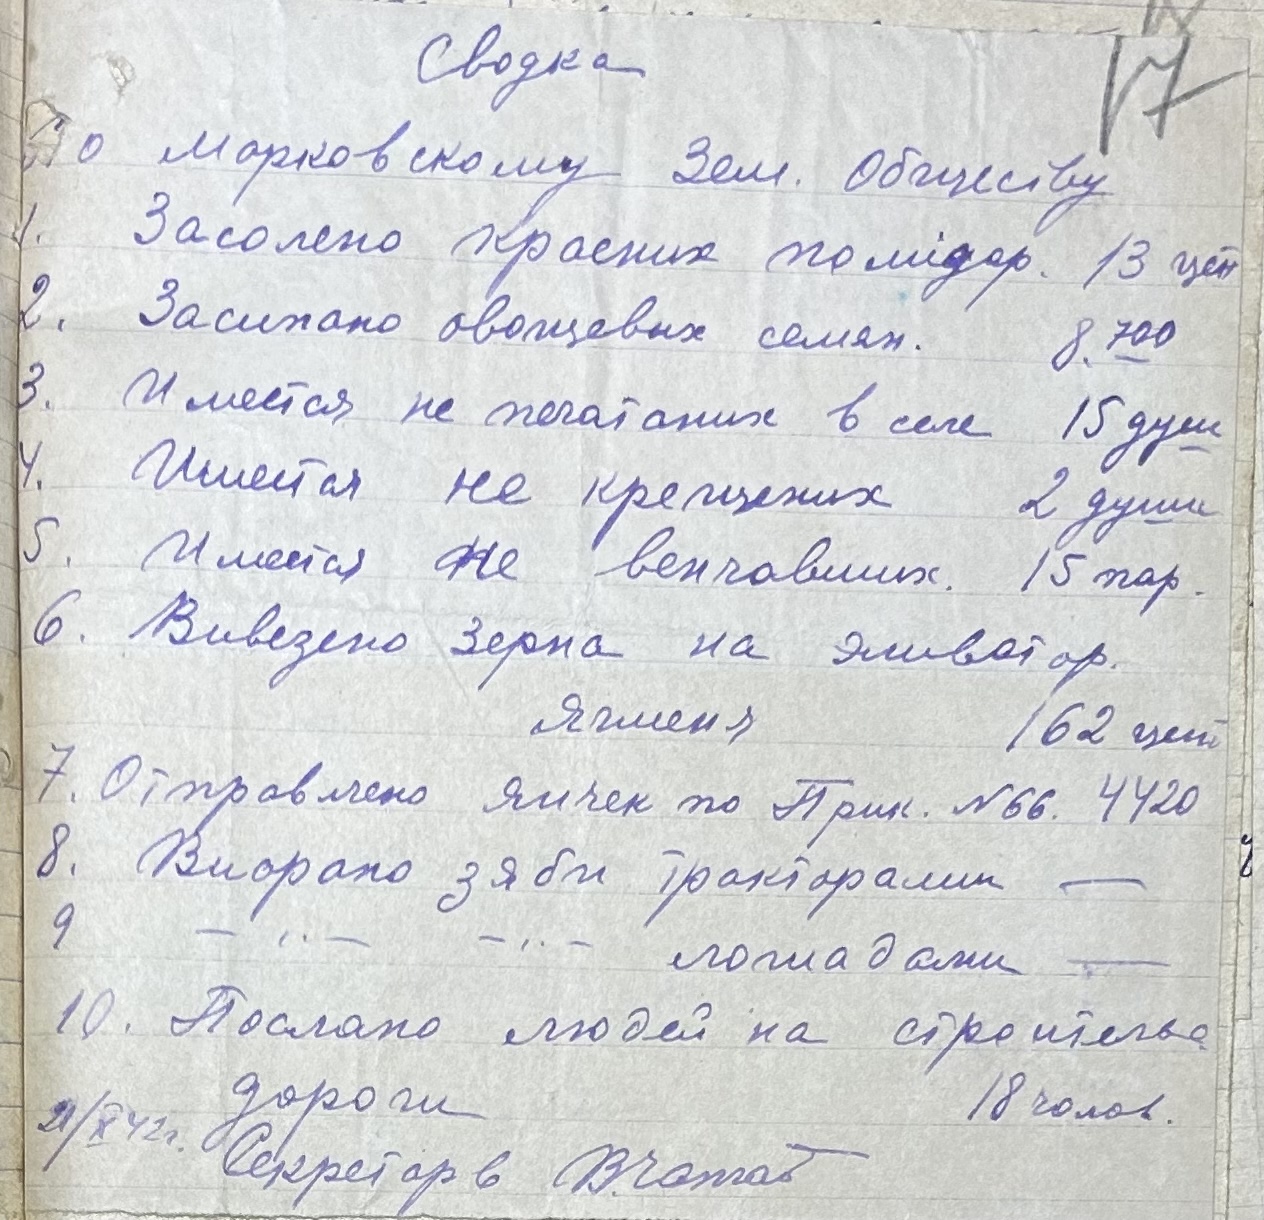 17
Сводка
По Марковскому Зем. Обществу
1. Засолено красних помідор. 13 цен
2. Засипано овощевых семян. 8.700
3. Имеется не печатаних в селе 15 душ
4. Имеется не крещених 2 души
5. Имеется не венчавших. 15 пар.
6. Вивезено зерна на эливатор.
Ячменя 162 цент
7. Отправлено яичек по Прик. №66. 4420
8. Виорано зяби тракторами —
9 — „ — — „ — лошадами —
10. Послано людей на строительс
дороги 18 чолов.
/X 42 г.
Секретарь